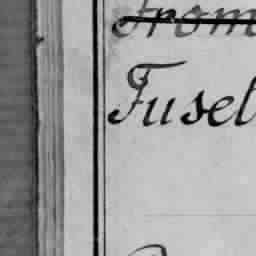 From
Fusel